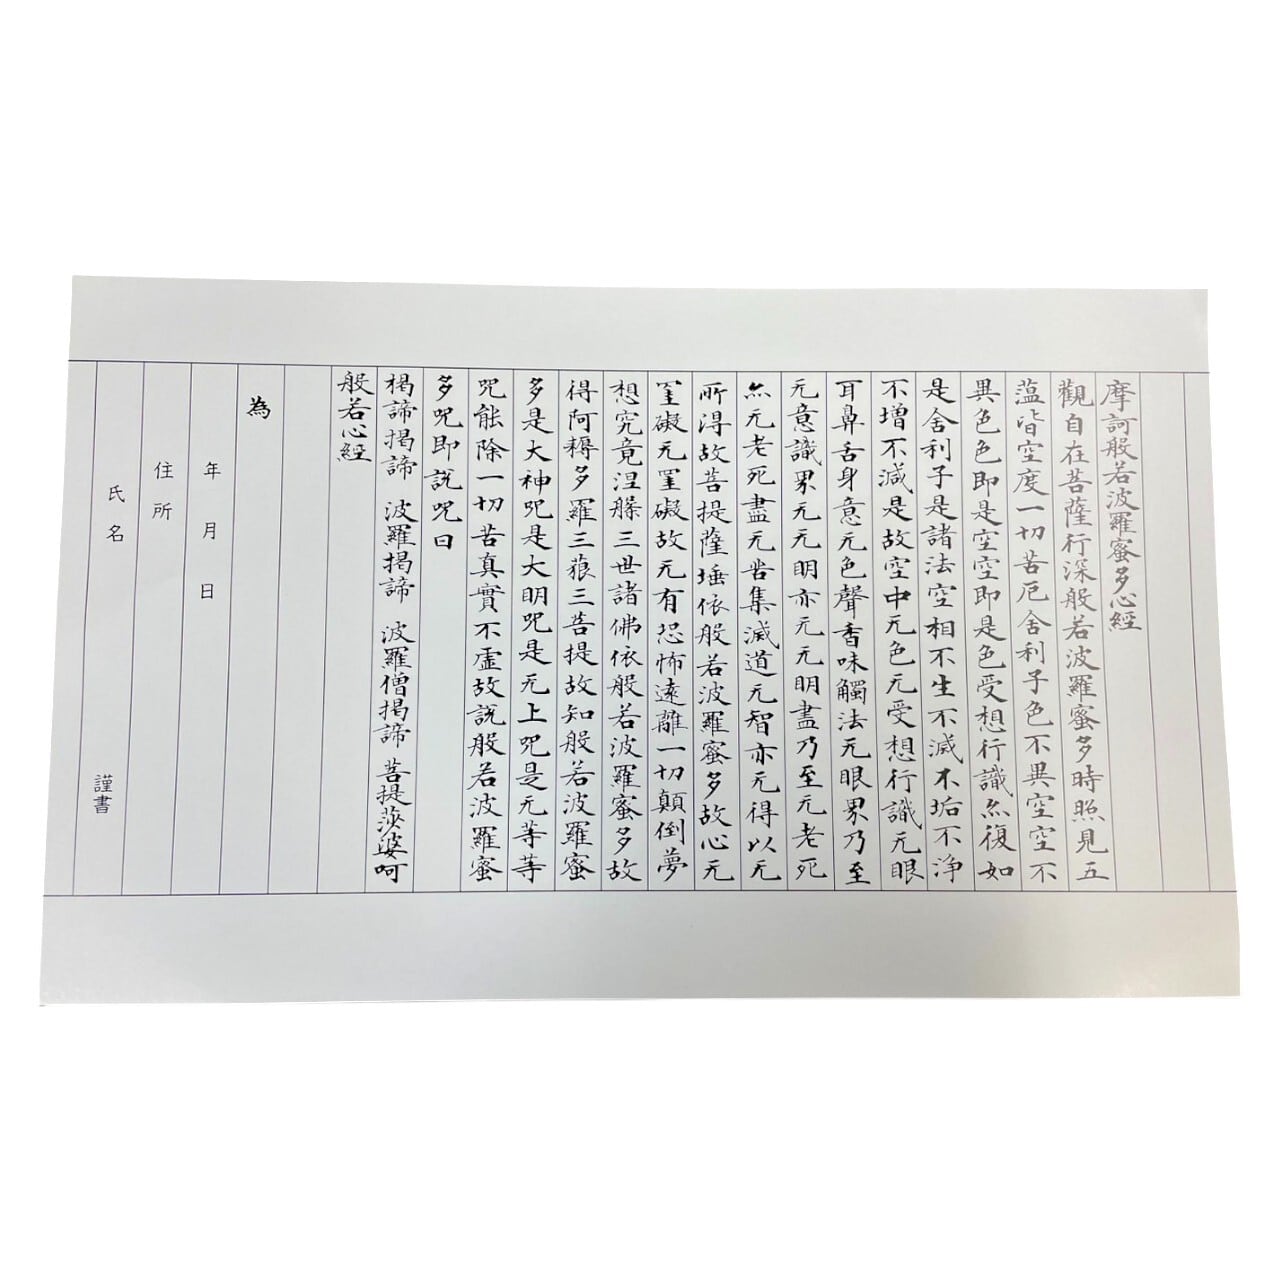 摩訶般若波羅蜜多心經
觀自在菩薩行深般若波羅蜜多時照見五
蘊皆空度一切苦厄舍利子色不異空空不
異色色即是空空即是色受想行識亦復如
是舍利子是諸法空相不生不滅不垢不淨
不增不減是故空中无色无受想行識无眼
耳鼻舌身意无色聲香味觸法无眼界乃至
无意識界无无明亦无无明盡乃至无老死
亦无老死盡无苦集滅道无智亦无得以无
所得故菩提薩埵依般若波羅蜜多故心无
罣礙无罣礙故无有恐怖遠離一切顛倒夢
想究竟涅槃三世諸佛依般若波羅蜜多故
得阿耨多羅三藐三菩提故知般若波羅蜜
多是大神呪是大明呪是无上呪是无等等
呪能除一切苦真實不虛故說般若波羅蜜
多呪即說呪曰
揭諦揭諦 波羅揭諦 波羅僧揭諦 菩提莎婆呵
般若心經
為
年 月 日
住所
氏名 謹書